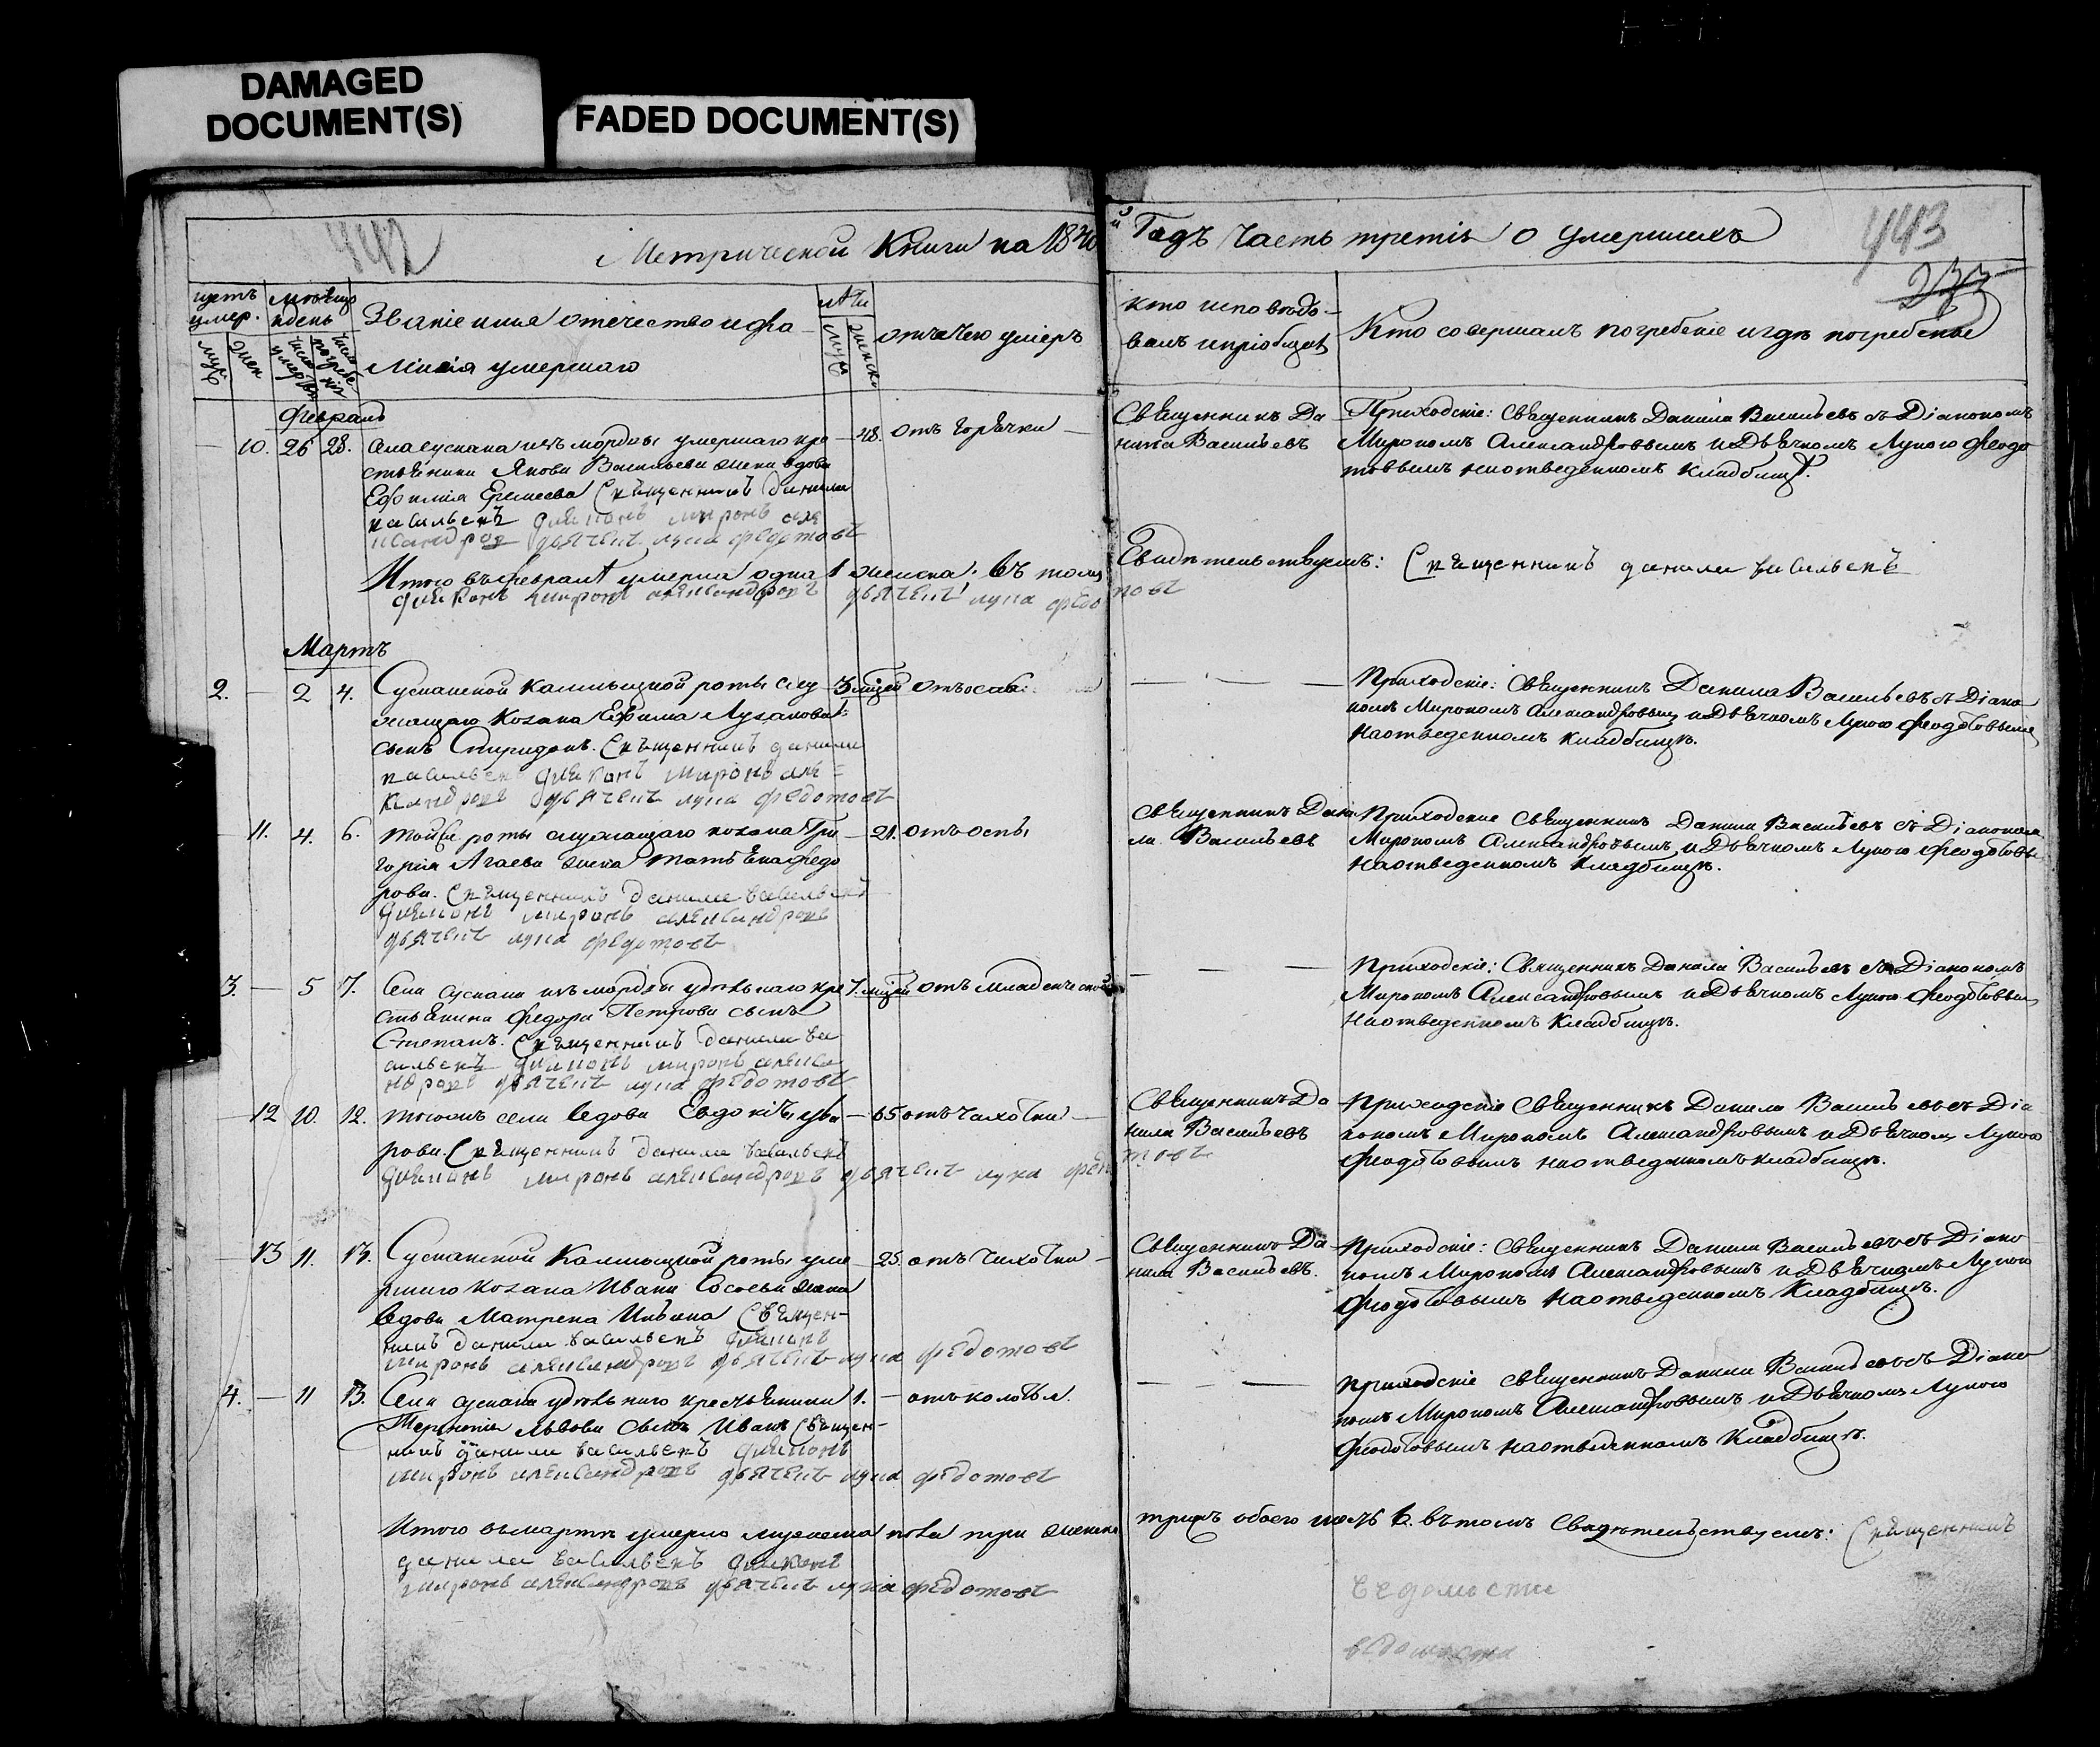 DAMAGED
DOCUMENT(S)
FADED DOCUMENT(S)
442
Метрической Книги на 1840
й Годъ Часть третія о умершихъ
443
233
щетъ
умер.
муж.
жен
мѣсяцъ
и день
число
умертв
число
погребе
нія
Званіе имя отечество и фа
милія умершаго
лѣти
муж
женск
отъ чего умеръ
кто исповѣдо-
валъ и пріобщалъ
Кто совершалъ погребеніе и гдѣ погребены
Февраль
10. 26 28. Села сускана изъ мордвы умершаго кре
стьянина Якова Васильева жена вдова
Ефимія Еремеева Священникъ данила
васильевъ диаконъ миронъ але
ксандровъ дьячекъ лука федотовъ
48. отъ горячки
Священникъ Да
нила Васильевъ
Приходскіе: Священникъ Данила Васильевъ съ Діакономъ
Мирономъ Александровымъ и Дьячкомъ Лукою Феодо
товымъ на отведенномъ кладбищѣ.
Итого въ февралѣ умерла одна 1 женска: въ томъ
Свидетельствуемъ: Священникъ данила васильевъ
диаконъ миронъ александровъ дьячекъ лука федо
товъ
Мартъ
2. — 2 4. Сусканской Калмыцкой роты слу
жащаго Козака Ефима Лузанова
сынъ Спиридонъ. Священникъ данила
васильевъ диаконъ миронъ але=
ксандровъ дьячекъ лука федотовъ
3 мѣсяц отъ оспы
Приходскіе: Священникъ Данила Васильевъ съ Діако
номъ Мирономъ Александровымъ и Дьячкомъ Лукою Феодотовымъ
на отведенномъ кладбищѣ.
— 11. 4. 6. той же роты служащаго козака Гри
горія Агаева жена Татьяна федо
рова. Священникъ данила васильевъ
диаконъ миронъ александровъ
дьячекъ лука федотовъ
21. отъ оспы
Священникъ Дани
ла Васильевъ
Приходскіе Священникъ Данила Васильевъ съ Діакономъ
Мирономъ Александровымъ и Дьячкомъ Лукою Феодотовы
на отведенномъ кладбищѣ.
3. — 5 7. Села Сускана изъ мордвы удѣльнаго кре
стьянина Федора Петрова сынъ
Степанъ. Священникъ данила ва
сильевъ диаконъ миронъ алекса
ндровъ дьячекъ лука федотовъ
7. мѣсяц отъ младенческой
Приходскіе: Священникъ Данила Васильевъ съ Діакономъ
Мирономъ Александровымъ и Дьячкомъ Лукою Феодотовымъ
на отведенномъ кладбищѣ.
12 10. 12. тогожъ села вдова Евдокія
рова. Священникъ данила васильевъ
диаконъ миронъ александровъ дьячекъ лука федо
товъ
65 отъ чахотки
Священникъ Да
нила Васильевъ
Приходскіе Священникъ Данила Васильевъ съ Діа
кономъ Мирономъ Александровымъ и Дьячкомъ Лукою
Феодотовымъ на отведенномъ кладбищѣ.
13 11. 13. Сусканской Калмыцкой роты уме
ршаго Козака Ивана жена
вдова Матрена Священ-
никъ данила васильевъ диаконъ
миронъ александровъ дьячекъ лука федотовъ
25. отъ чахотки
Священникъ Да
нила Васильевъ.
Приходскіе: Священникъ Данила Васильевъ съ Діако
номъ Мирономъ Александровымъ и Дьячкомъ Лукою
Феодотовымъ на отведенномъ Кладбищѣ.
4. — 11 13. Села сускана удѣльнаго крестьянина
Терентія Львова сынъ Иванъ Священ-
никъ данила васильевъ диаконъ
миронъ александровъ дьячекъ лука федотовъ
1. — отъ колотья.
Приходскіе Священникъ Данила Васильевъ съ Діако
номъ Мирономъ Александровымъ и Дьячкомъ Лукою
Феодотовымъ на отведенномъ Кладбищѣ.
Итого въ мартѣ умерло мужеска пола три женска
трижъ обоего полъ 6. въ томъ Свидетельствуемъ: Священникъ
данила васильевъ диаконъ
миронъ александровъ дьячекъ лука федотовъ
ведомости
ведомости